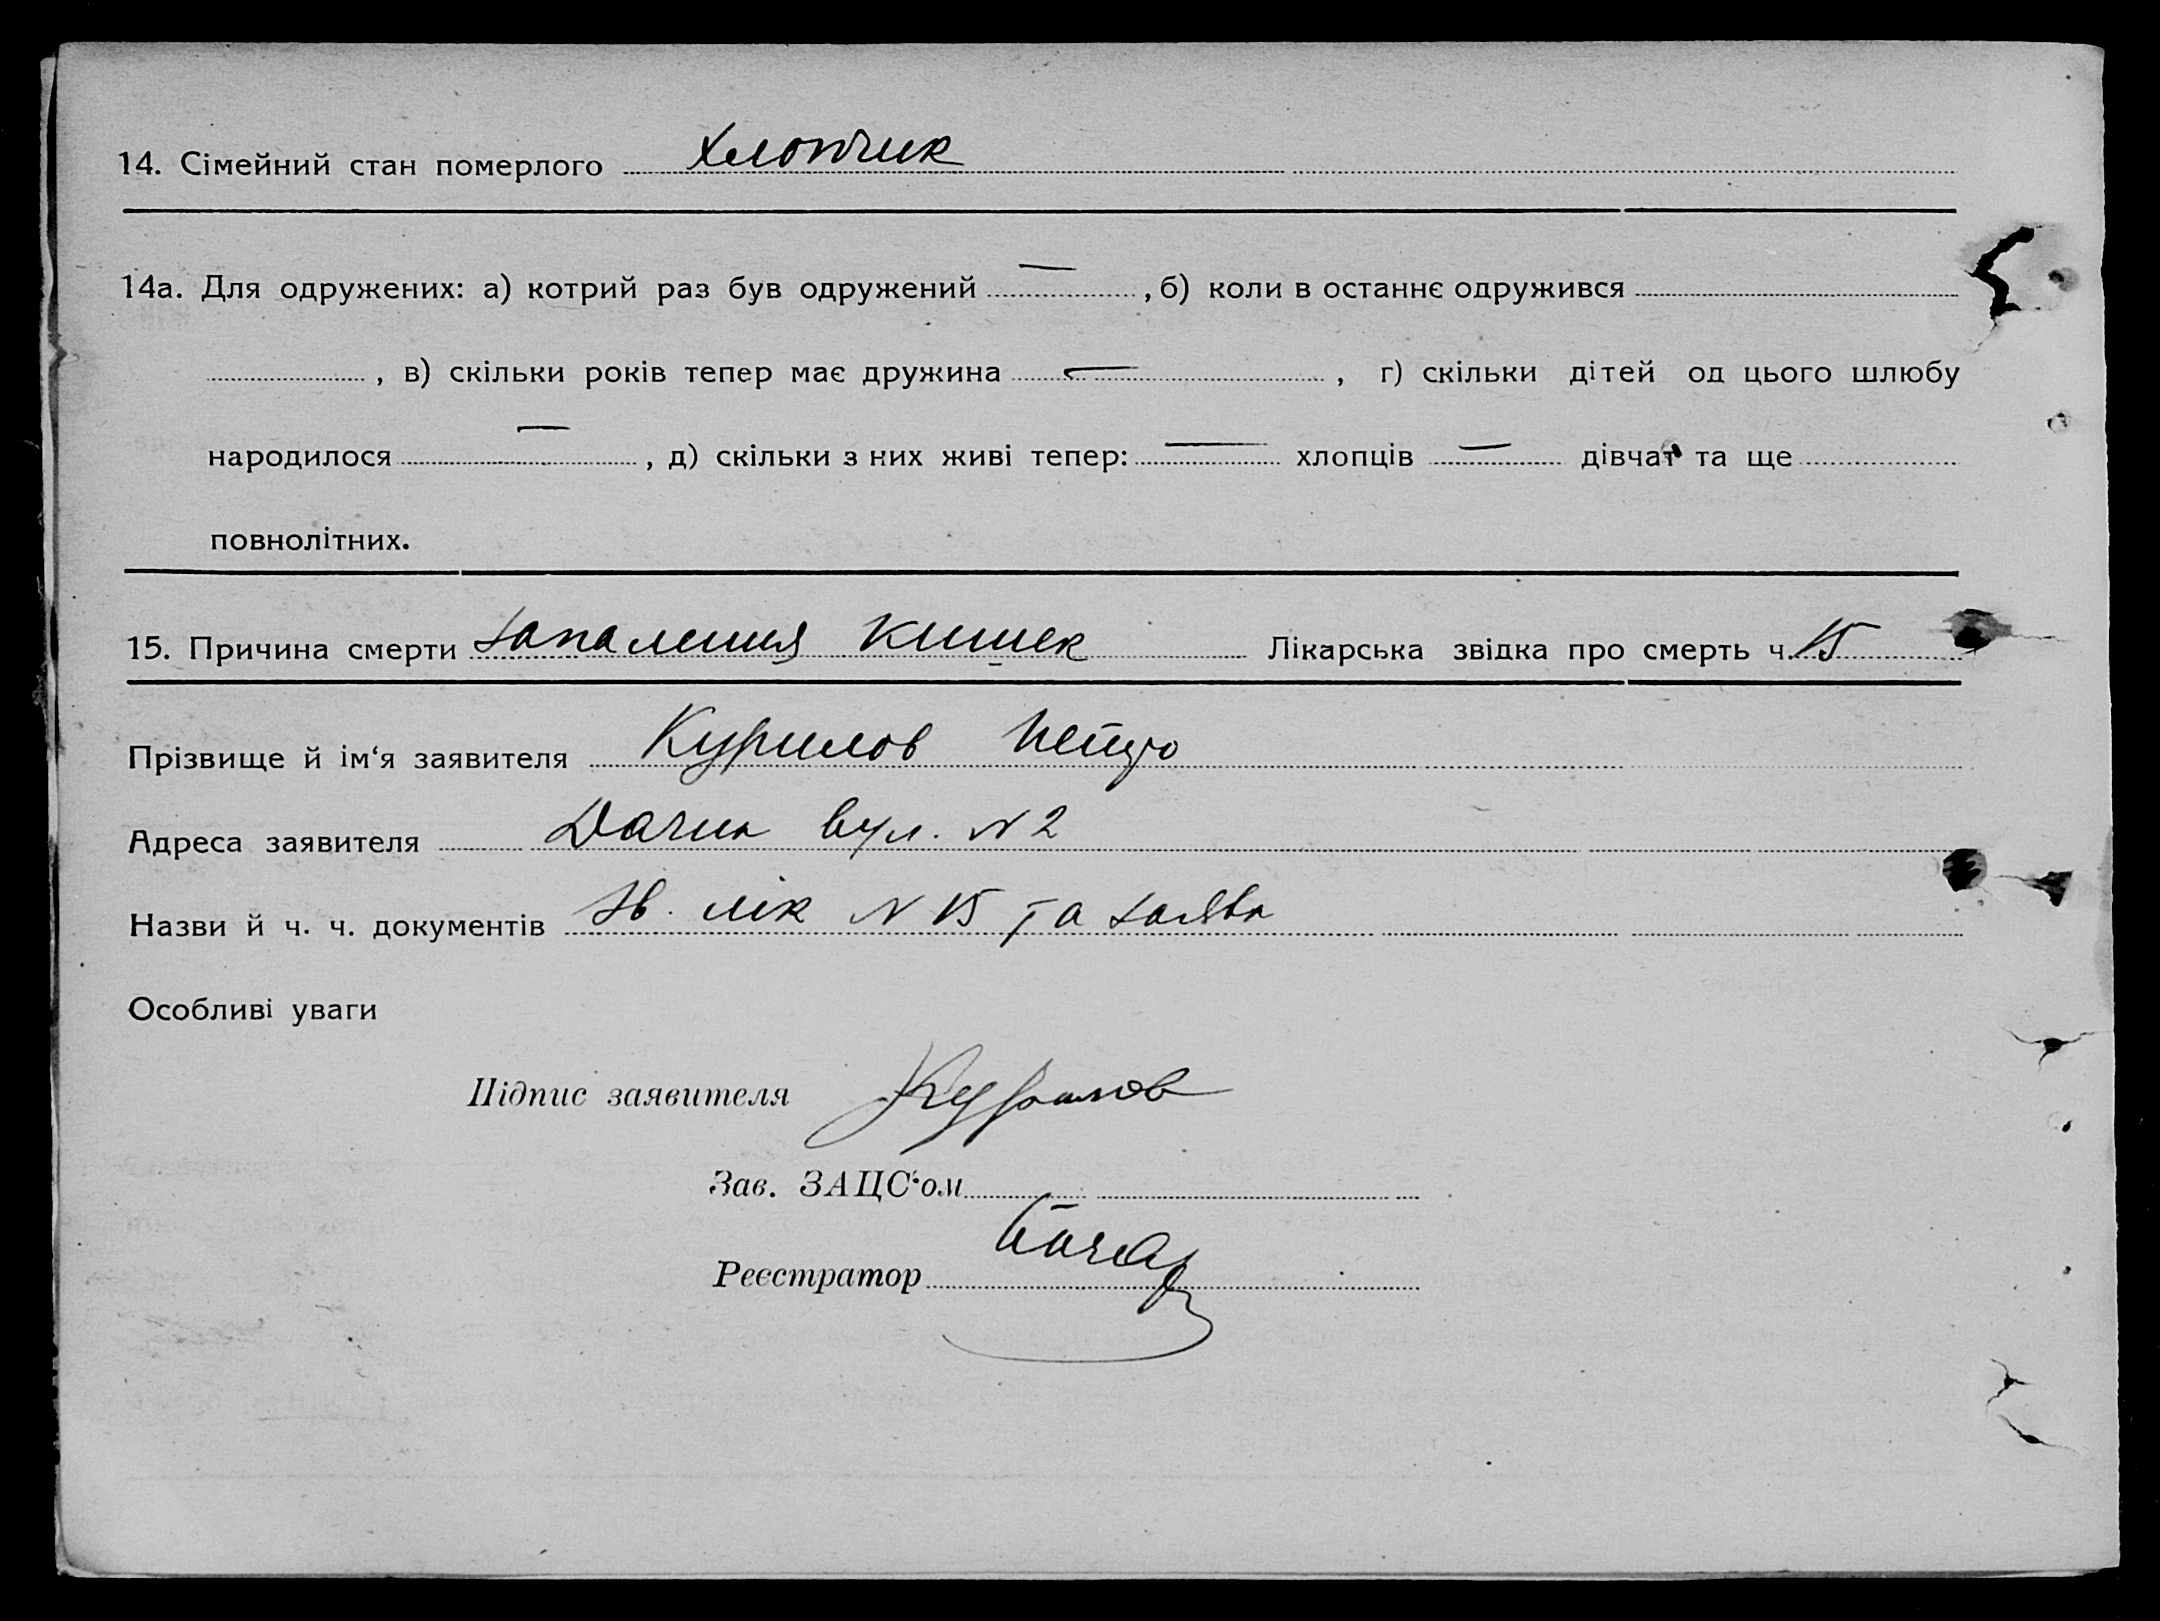 14. Сімейний стан померлого хлопчик
14а. Для одружених: а) котрий раз був одружений — , б) коли в останнє одружився
, в) скільки років тепер має дружина — , г) скільки дітей од цього шлюбу
народилося — , д) скільки з них живі тепер: — хлопців — дівчат та ще
повнолітних.
15. Причина смерти запалення кишек Лікарська звідка про смерть ч. 15
Прізвище й ім‘я заявителя Курилов
Адреса заявителя Дачна вул. N 2
Назви й ч. ч. документів Зв. лік N 15 та заява
Особливі уваги
Підпис заявителя Курилов
Зав. ЗАЦС‘ом
Реєстратор